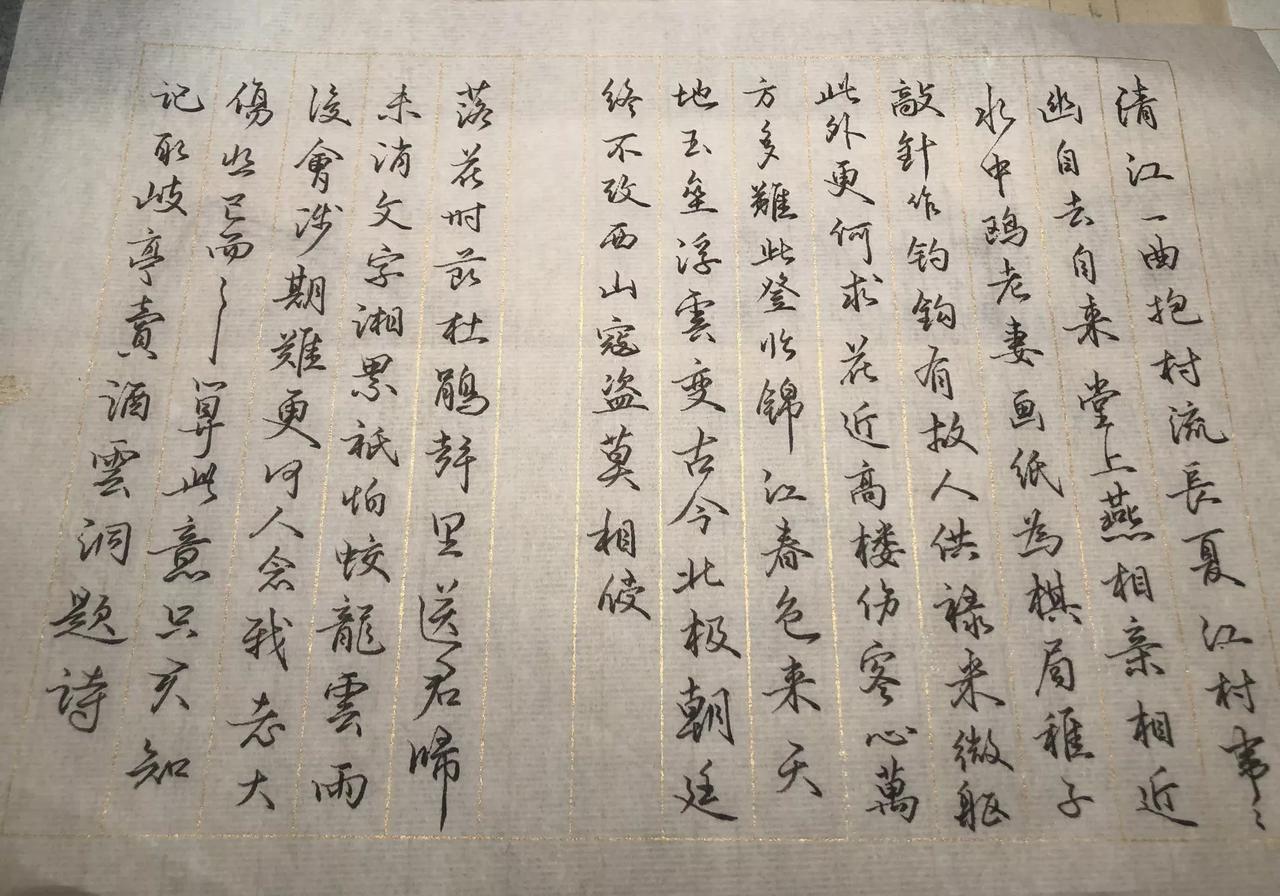 清江一曲抱村流長夏江村事〻
幽自去自来堂上燕相亲相近
水中鸥老妻画纸为棋局稚子
敲針作钓鈎有故人供禄米微躯
此外更何求花近高楼伤客心萬
方多難此登临錦江春色来天
地玉垒浮雲变古今北极朝廷
终不改西山寇盗莫相侵
落花时节杜鹃聲里送君歸
未消文字湘累衹怕蛟龍雲雨
後會渺期難更何人念我老大
傷悲已而〻算此意只君知
记取岐亭賣酒雲洞題詩